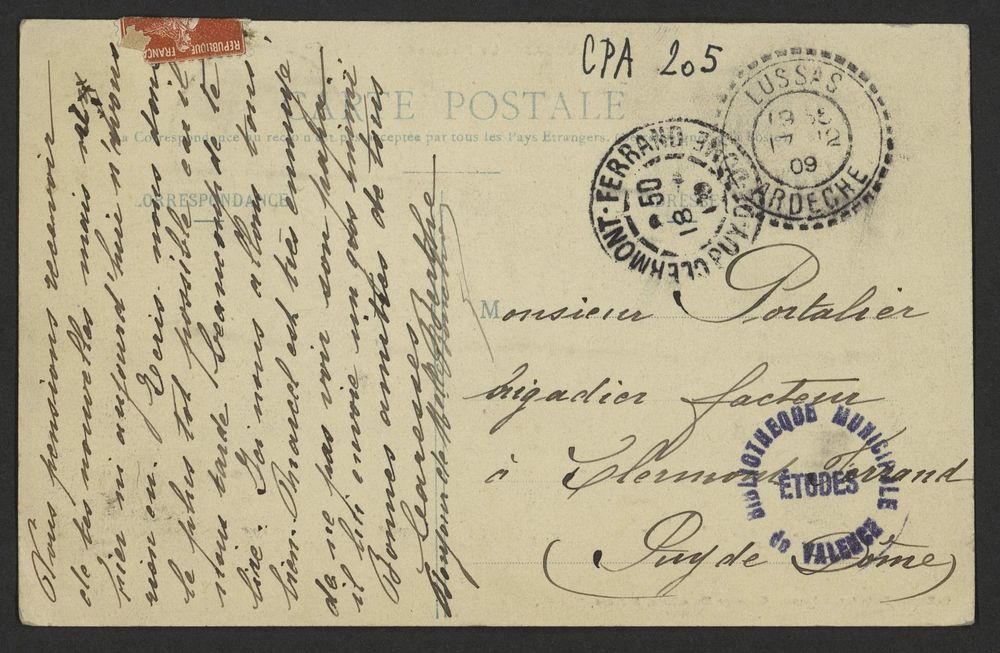 CPA 205
RÉPUBLIQUE FRANC
CARTE POSTALE
La Correspondance au recto n'est pas acceptée par tous les Pays Étrangers,
CORRESPONDANCE
LUSSAS
09
ARDECHE
CLERMONT-FERRAND
PUY-DE-DOME
8 50
18
Nous pensions recevoir
de tes nouvelles mais ni
hier ni aujourd'hui n'avons
rien eu. Ecris nous donc
le plus tôt possible car il
nous tarde beaucoup de te
lire. Ici nous allons tous
bien. Marcel est très ennuyé
de ne pas voir son papa
il lui envoie un gros baiser
Bonnes amitiés de tous
Caresses
Monsieur Portalier
brigadier facteur
à Clermont Ferrand
(Puy de Dôme)
BIBLIOTHEQUE MUNICIPALE
ÉTUDES
de VALENCE